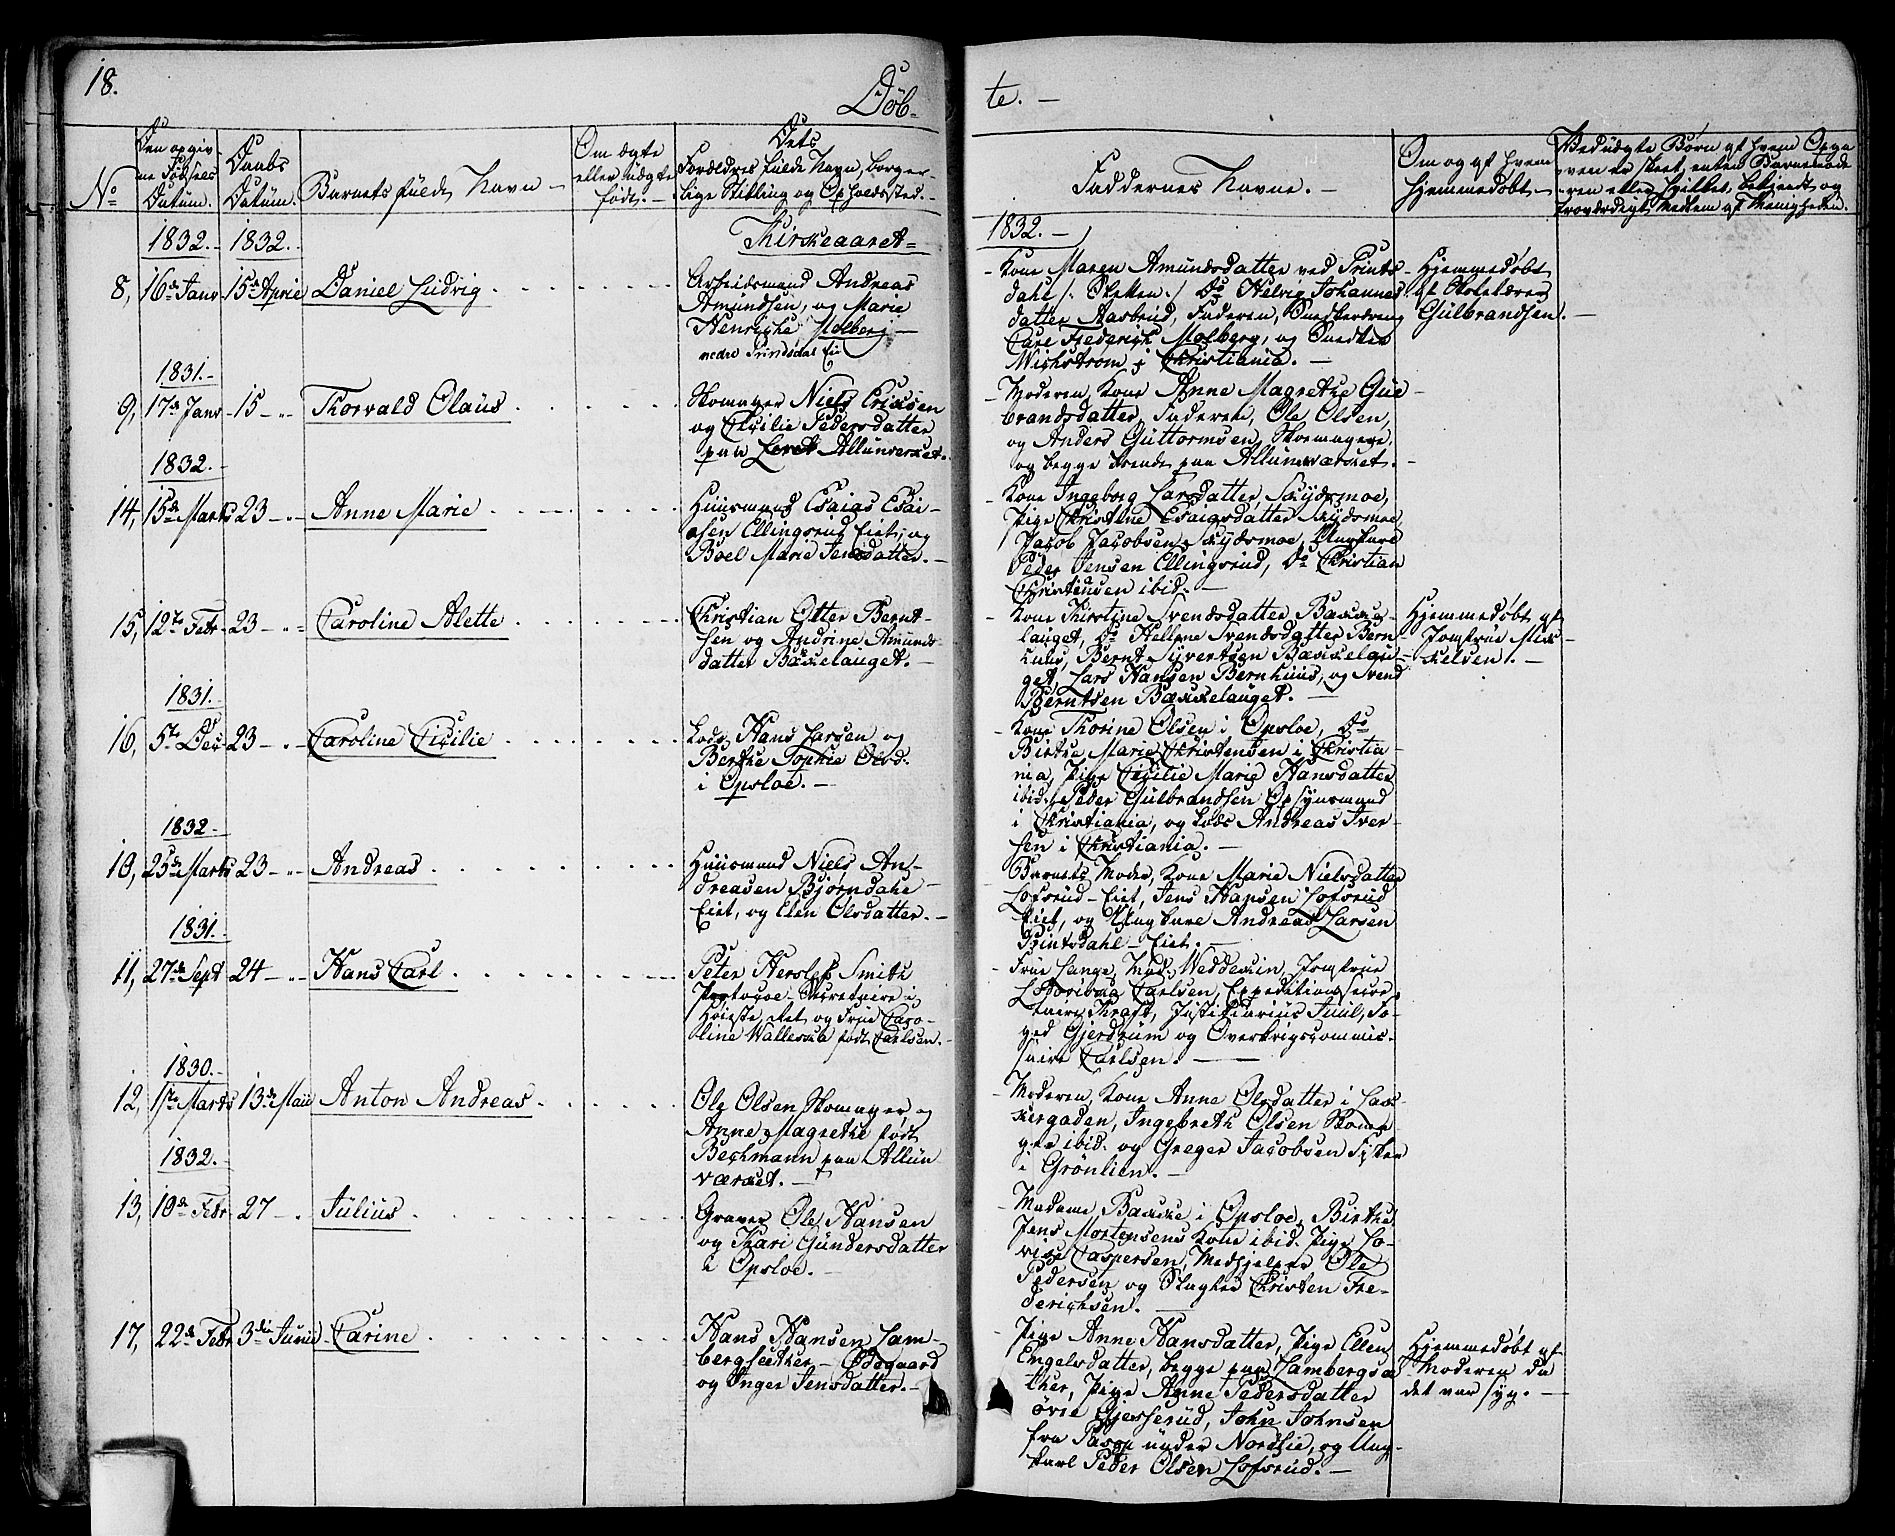 18.
Döb-
te. –
No
Den opgiv-
ne Födsels
Datum.
Daabs
Datum.
Barnets fulde Navn –
Om ægte
eller uægte
födt. –
Dets
Forældres fulde Navn, borger-
lige Stilling og Opholdssted. –
Faddernes Navne. –
Om og af hvem
hjemmedöbt –
Ved uægte Börn af hvem Opga-
ven er skeet, enten Barnemode-
ren eller hvilket, bekjendt og
troværdigt Medlem af Menigheden.
1832. – 1832. –
Thirskeaaret –
1832. –
8, 16de Janr 15de April Daniel Ludvig
Arbeidsmand Andreas
Amundsen, og Marie
Henriche Molberg –
nedre Prindsdal Ei
– Kone Maren Amundsdatter ved Prints-
dahl /: :/ Do Helvig Johannes-
datter Aasbrud, Faderen, Snedkerdreng
Carl Frederich Molberg, og Snedker
Wichström i Christiania. –
Hjemmedöbt
af Skolelærer
Gulbrandsen. –
1831. –
9, 17de Janr 15 – „ – Thorvald Olaus
Skomager Niels Erichsen
og Cicilie Pedersdatter
paa Allunverket. –
– Moderen, Kone Anne Magrethe Gul-
brandsdatter, Faderen, Ole Olsen,
og Anders Guttormsen, Skomagere,
og begge paa Allunværket. –
1832. –
14, 15de Marts 23 – „ – Anne Marie
Huusmand Esaias Esai-
asen Ellingsrud Eiet, og
Boel Marie Jensdatter. –
– Kone Ingeborg Larsdatter, Skydsmoe,
Pige Christine Esaiasdatter Skydsmoe,
Jacob Jacobsen Skydsmoe, Ungkarl
Peder Jensen Ellingsrud, Do Christian
Christensen ibid. –
15, 12te Febr 23 – „ – Caroline Alette
Christian Otter Bernt-
sen og Andrine Amunds-
datter Bækkelauget. –
– Kone Thirstine Svendsdatter Bække-
lauget, Do Hellene Svendsdatter Bern-
huus, Bernt Syvertsen Bækkelau-
get, Lars Hansen Bernhuus, og Svend
Berntsen Bækkelauget. –
Hjemmedöbt af
Jomfrue Mik-
kelsen. –
1831. –
16, 5te Decr 23 – „ – Caroline Cicilie
Lods Hans Larsen og
Berthe Sophie Olsd.
i Opsloe. –
– Kone Thorine Olsen i Opsloe, Do
Birthe Marie Christensen i Christia-
nia, Pige Cicilie Marie Hansdatter
ibid., Peder Gulbrandsen Opsynsmand
i Christiania, og Lods Andreas Iver-
sen i Christiania. –
1832. –
10, 25de Marts 23 – „ – Andreas
Huusmand Niels An-
dreasen Björndahl-
Eiet, og Elen Olsdatter. –
– Barnets Moder, Kone Marie Nielsdatter
Lofsrud-Eiet, Jens Hansen Lofsrud
Eiet, og Ungkarl Andreas Larsen
Printsdahl-Eiet. –
1831. –
11, 27de Sept 24 – „ – Hans Carl
Peter Hersleb Smith
Protocol-Secretaire i
Höieste Ret og Frue Caro-
line Walleska födt Carlsen. –
– Frue Lange, Mad. Weddekin, Jomfrue
Carlsen, Expeditionssecre-
tair Kraft, Justitiarius Juul, Fo-
ged Gjerdrum og Overkrigscommis-
saire Carlsen. –
1830. –
12, 1ste Marts 13de Maii Anton Andreas
Ole Olsen Skomager og
Anne Magrethe födt
Bechmann paa Allun-
værket. –
– Moderen, Kone Anne Olsdatter i Lak-
kergaden, Ingebreth Olsen Skoma-
ger ibid. og Greger Jacobsen Fisker
i Grönlien. –
1832. –
13, 10de Febr 27 – „ Julius
Graver Ole Hansen
og Kari Gundersdatter
i Opsloe. –
– Madame Bakke i Opsloe, Birthe
Jens Mortensens Kone ibid. Pige Lo-
vise Caspersen, Medhjelper Ole
Pedersen og Slagter Christen Fre-
derichsen. –
17, 22de Febr 3die Junii Carine
Hans Hansen Lam-
bergsæther – Ödegaard
og Inger Jensdatter. –
– Pige Anne Hansdatter, Pige Ellen
Engelsdatter, begge paa Lambergsæ-
ther, Pige Anne Pedersdatter
övre Gjersrud, John Johnsen
fra under Nordlie, og Ung-
karl Peder Olsen Lofsrud. –
Hjemmedöbt af
Moderen da
det var syg. –